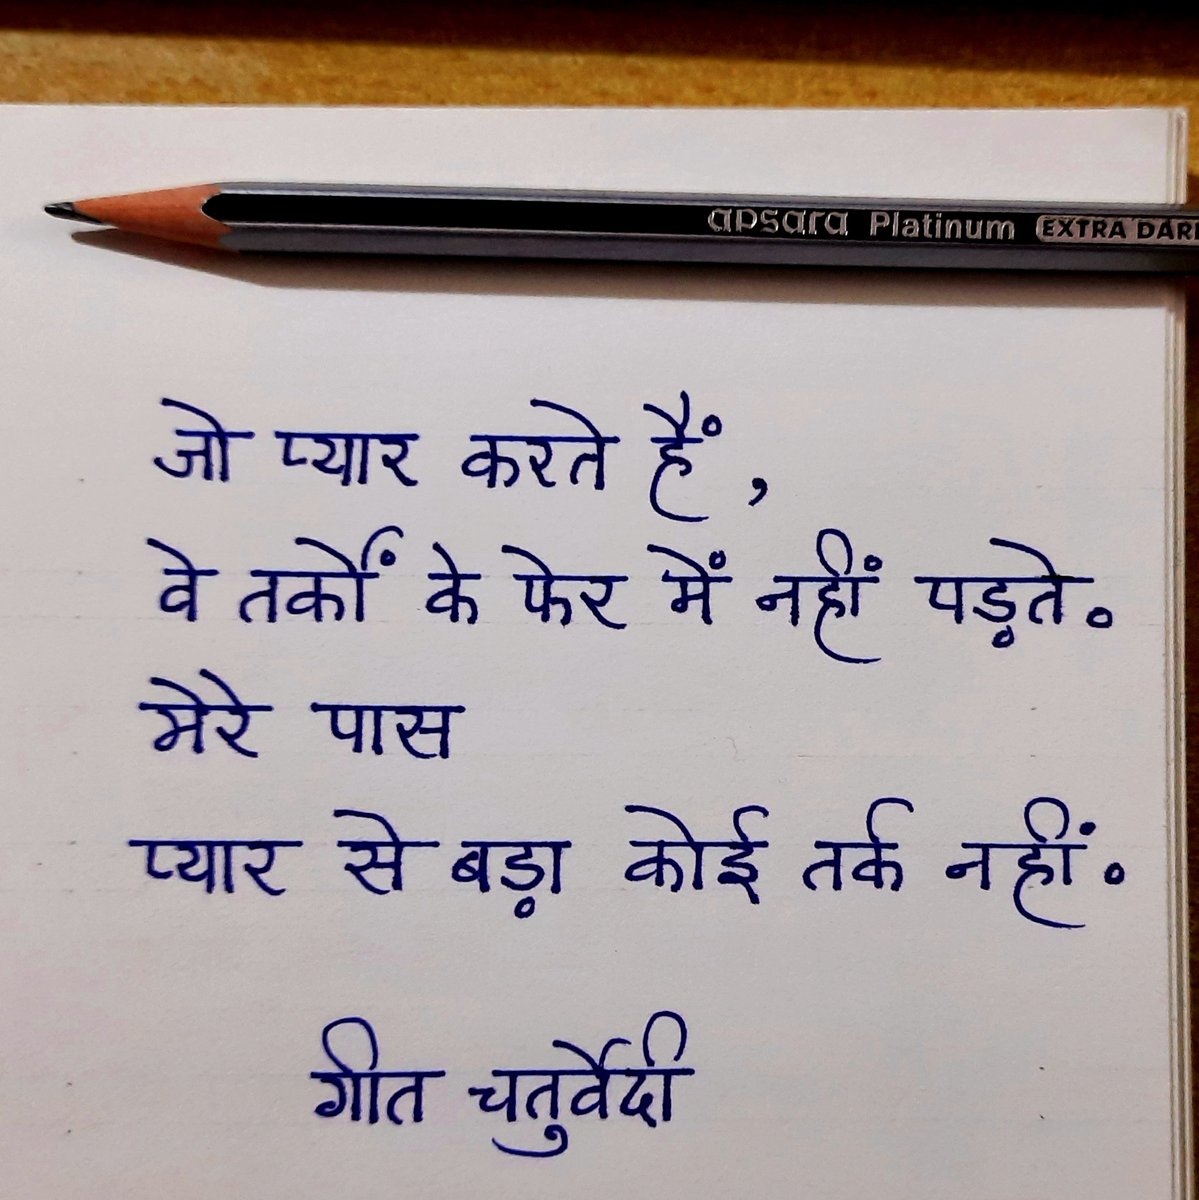 apsara Platinum EXTRA DAR
जो प्यार करते हैं,
वे तर्कों के फेर में नहीं पड़ते.
मेरे पास
प्यार से बड़ा कोई तर्क नहीं.
गीत चतुर्वेदी